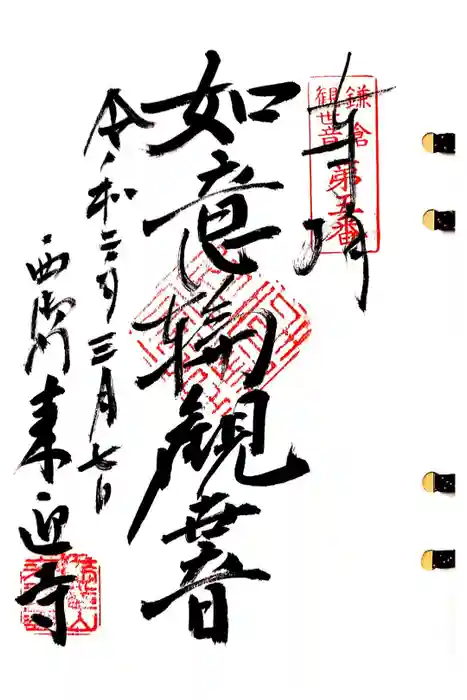 奉拝
鎌倉
観世音
第五番
如意輪観世音
令和三年三月七日
西御門 来迎寺